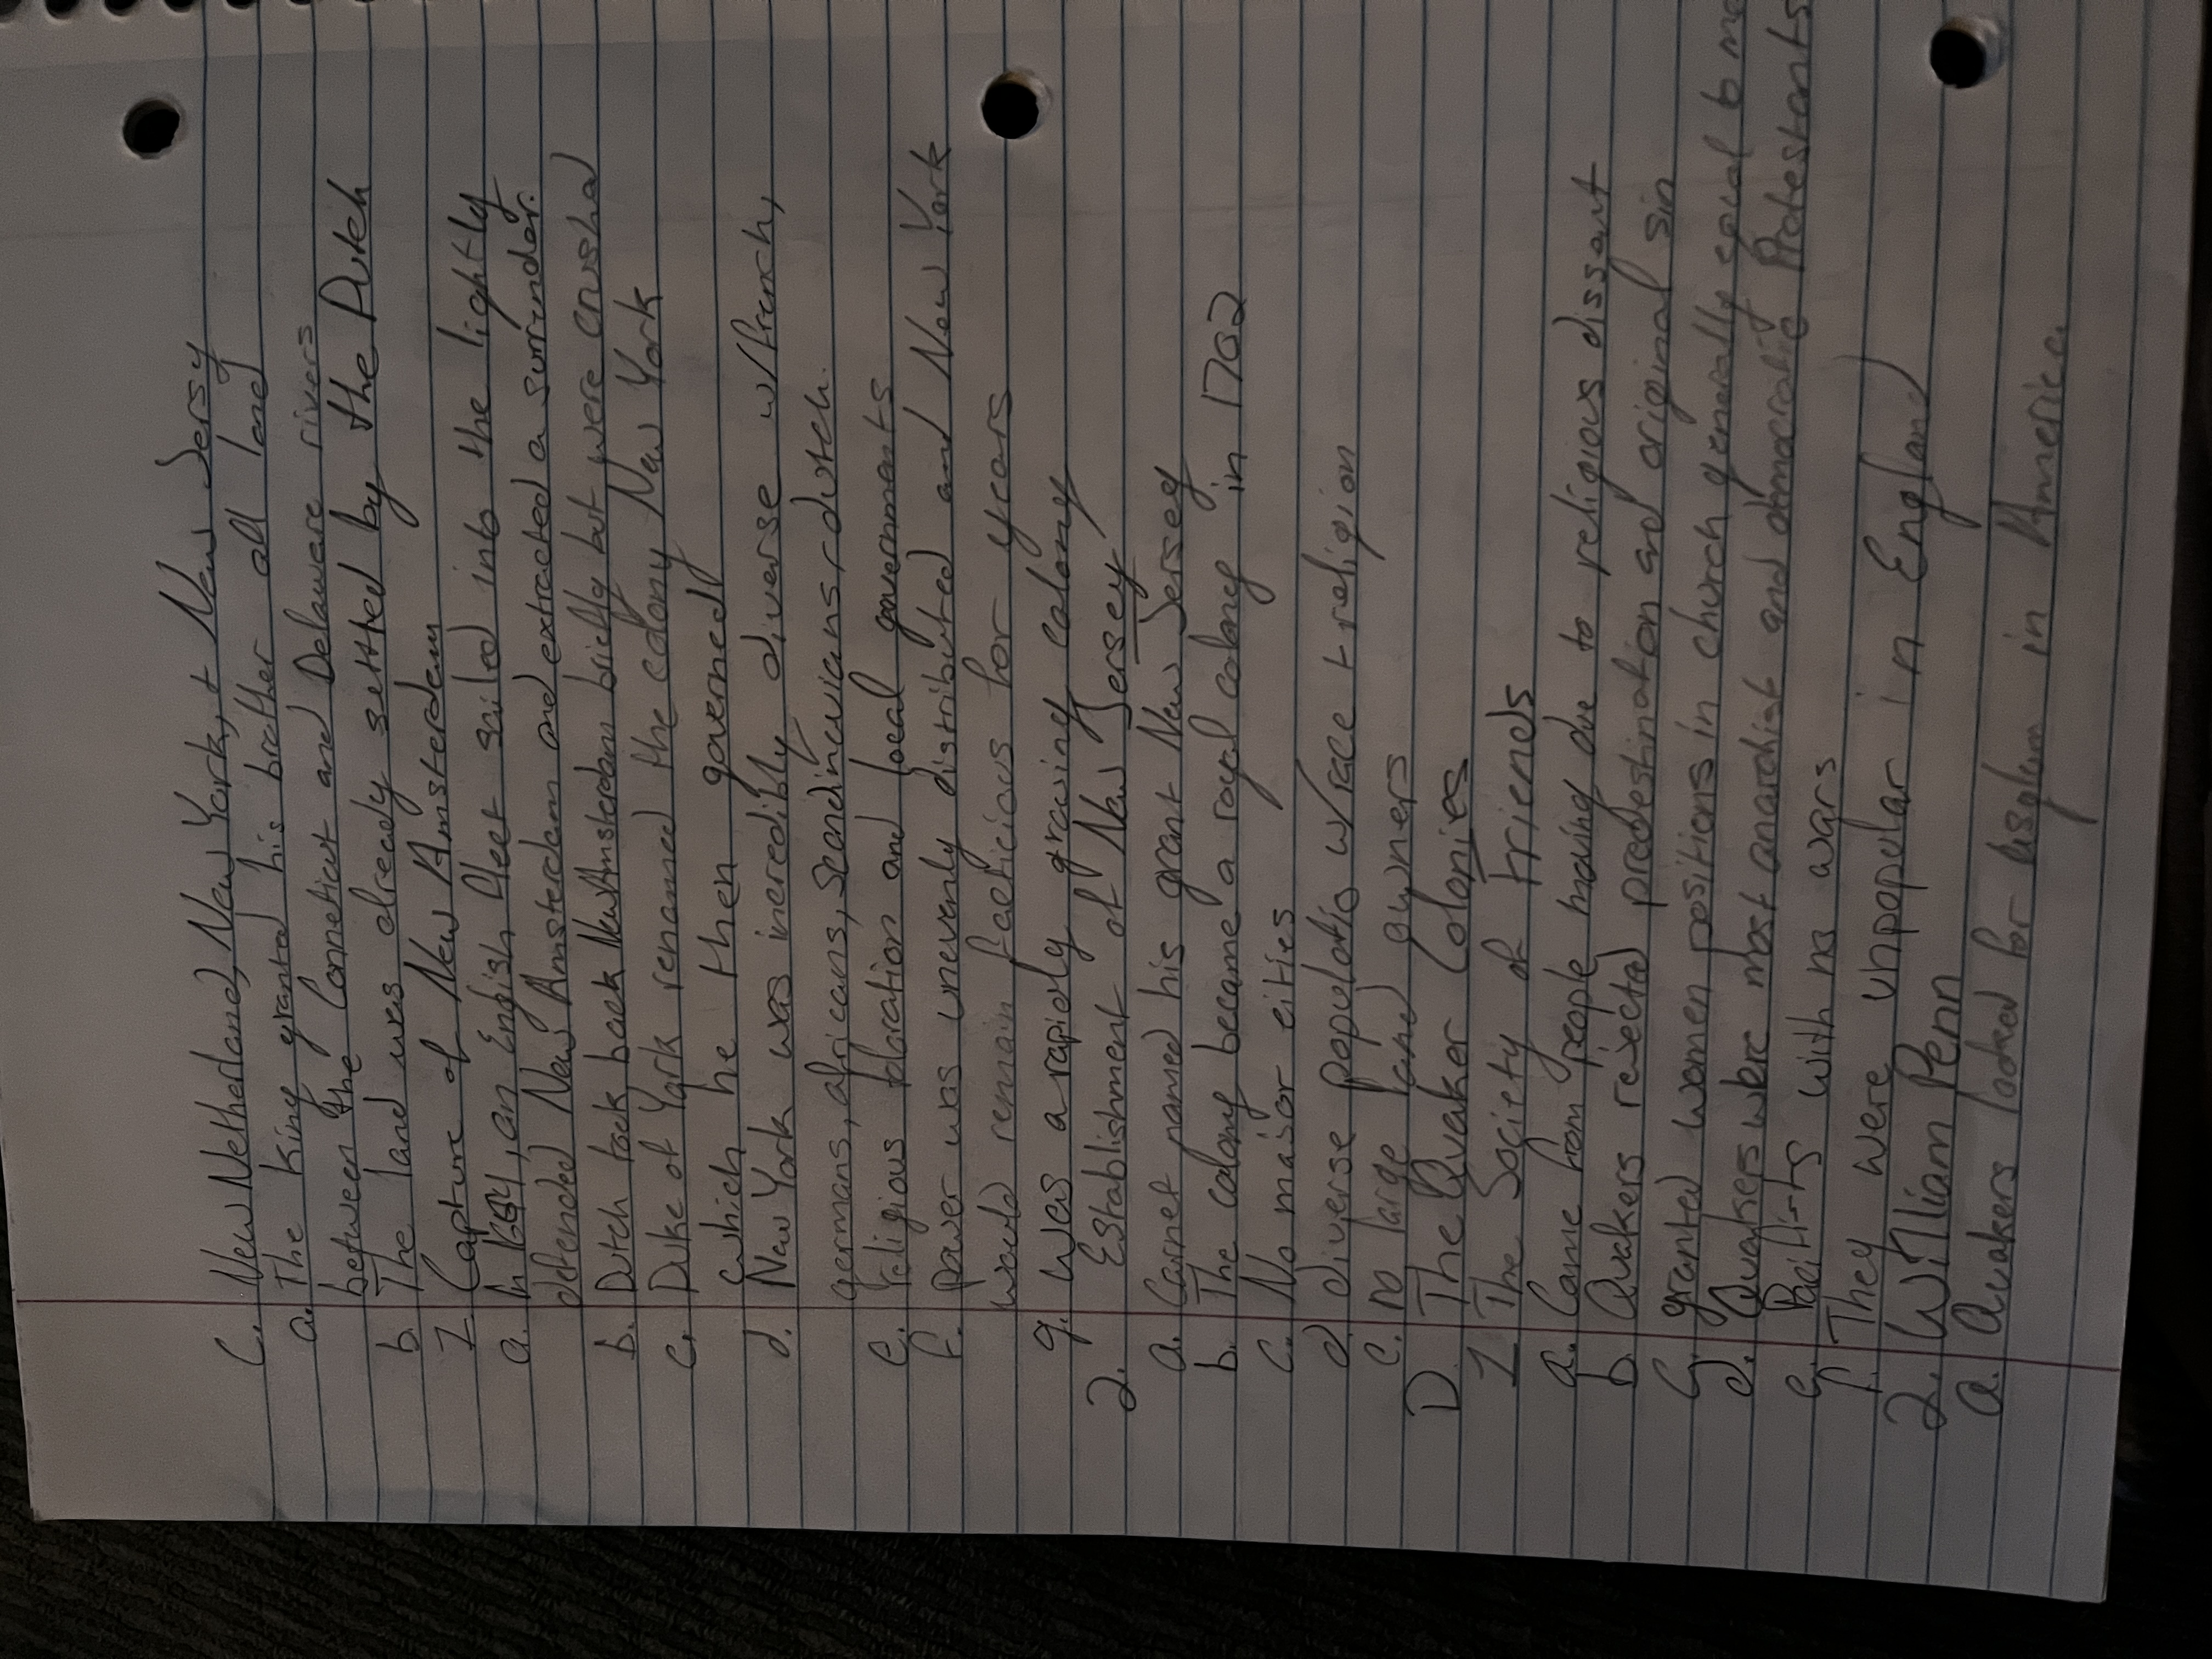 C. New Netherland, New York, + New Jersy
a. The King granted his brother all land
between the Conneticut and Delaware rivers
b. The land was already settled by the Dutch
1. Capture of New Amsterdam
a. In 1664, an English fleet sailed into the lightly
defended New Amsterdam and extracted a surrunder.
b. Dutch took back New Amsterdam briefly but were crushed
c. Duke of York renamed the colony New York
which he then governed
d. New York was incredibly diverse w/french,
germans, africans, Scandinavians, dutch.
e. religious toleration and local governments
f. power was unevenly distributed and New York
would remain facticious for years
g. was a rapidly growing colony
2. Establishment of New Jersey
a. Carnet named his grant New Jersey
b. The colony became a royal colony in 1702
c. No major cities
d. diverse populatio w/race + religion
e. no large land owners
D. The Quaker Colonies
1. The Society of Friends
a. Came from people moving due to religious dissent
b. Quakers rejected predestination and original sin
c. granted women positions in church generally equal to me
d. Quakers were most anarchist and democratic Protestants
e. Pacifists with no wars
f. They were unpopular in England
2. William Penn
a. Quakers looked for asylum in America.